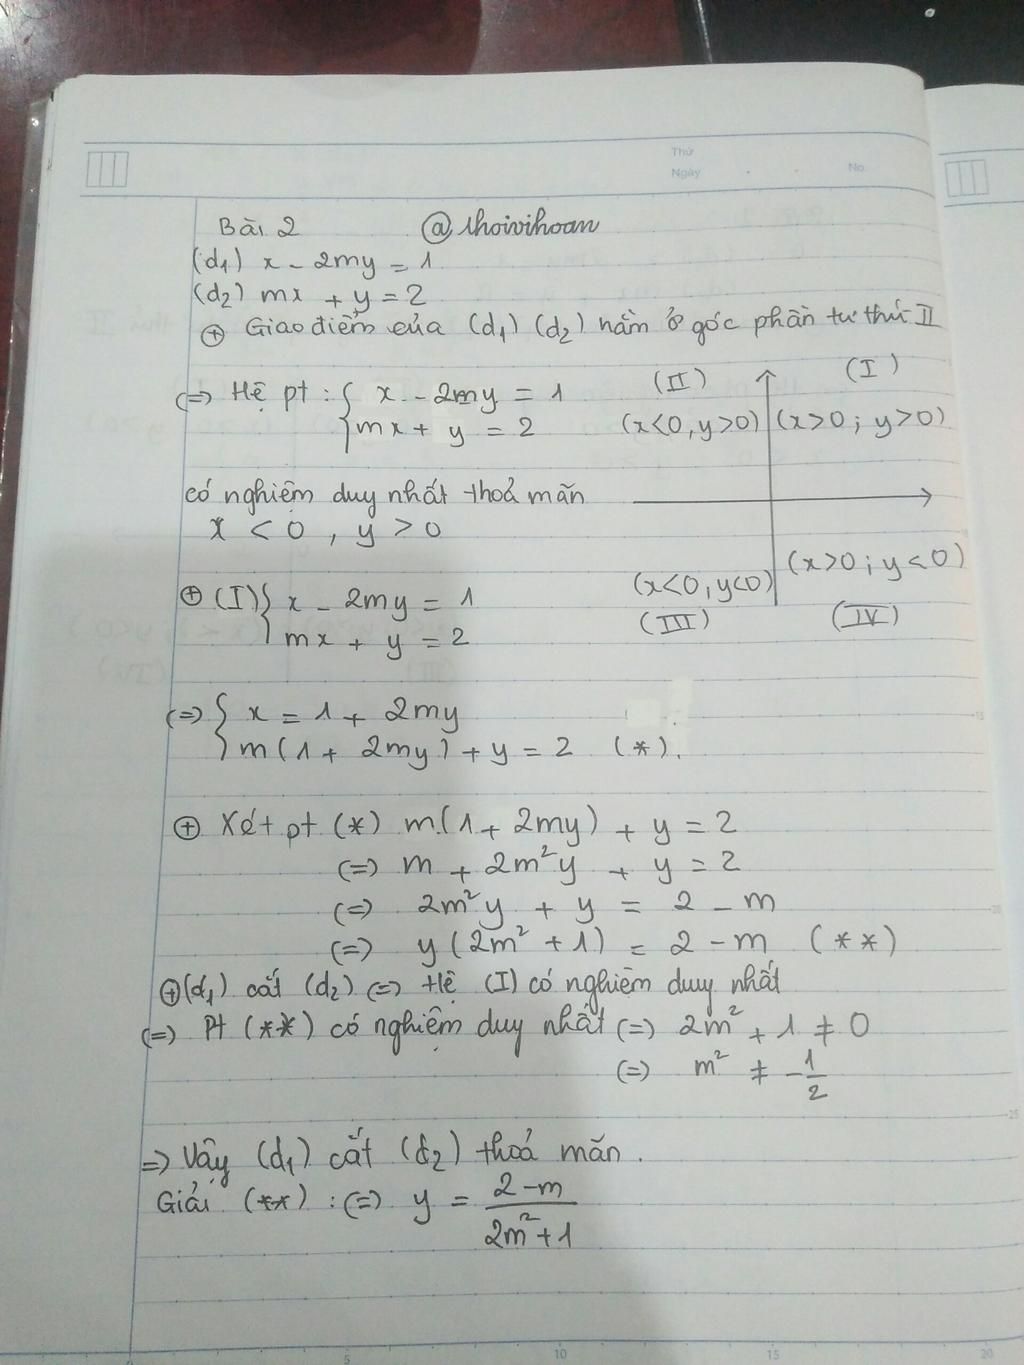 Thứ
Ngày
No.
Bài 2 @thoivihoan
(d₁) x - 2my = 1
(d₂) mx + y = 2
⊕ Giao điểm của (d₁) (d₂) nằm ở góc phần tư thứ II
(=) Hệ pt : { x - 2my = 1
mx + y = 2
(II) (I)
(x<0, y>0) (x>0 ; y>0)
có nghiệm duy nhất thoả mãn
x < 0 , y > 0
(x<0, y<0) (x>0 ; y<0)
(III) (IV)
⊕ (I) { x - 2my = 1
mx + y = 2
(=) { x = 1 + 2my
m(1 + 2my) + y = 2 (*).
⊕ Xét pt (*) m(1 + 2my) + y = 2
(=) m + 2m²y + y = 2
(=) 2m²y + y = 2 - m
(=) y(2m² + 1) = 2 - m (**)
⊕ (d₁) cắt (d₂) (=) Hệ (I) có nghiệm duy nhất
(=) Pt (**) có nghiệm duy nhất (=) 2m² + 1 ≠ 0
(=) m² ≠ -1/2
=> Vậy (d₁) cắt (d₂) thoả mãn.
Giải (**) : (=) y = (2-m)/(2m²+1)
5 10 15 20